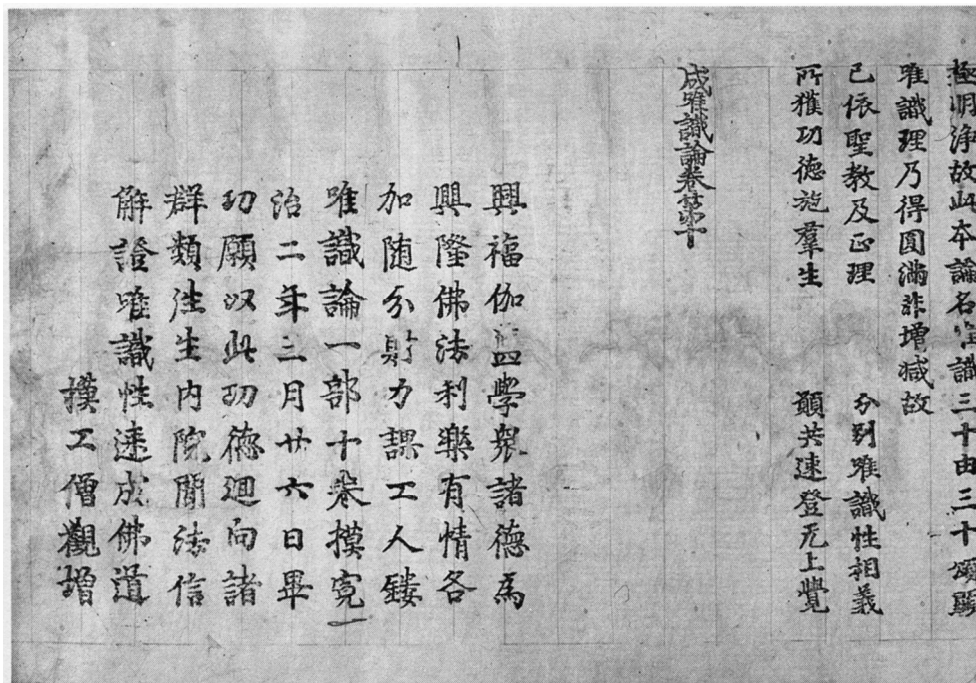 極明淨故此本論名唯識三十由三十頌顯
唯識理乃得圓滿非增減故
已依聖教及正理 分別唯識性相義
所獲功德施羣生 願共速登无上覺
成唯識論卷第十
興福伽藍學衆諸德為
興隆佛法利樂有情各
加随分財力課工人鏤
唯識論一部十卷摸寛
治二年三月廿六日畢
功願以此功德迴向諸
群類往生内院聞法信
解證唯識性速成佛道
摸工僧觀增